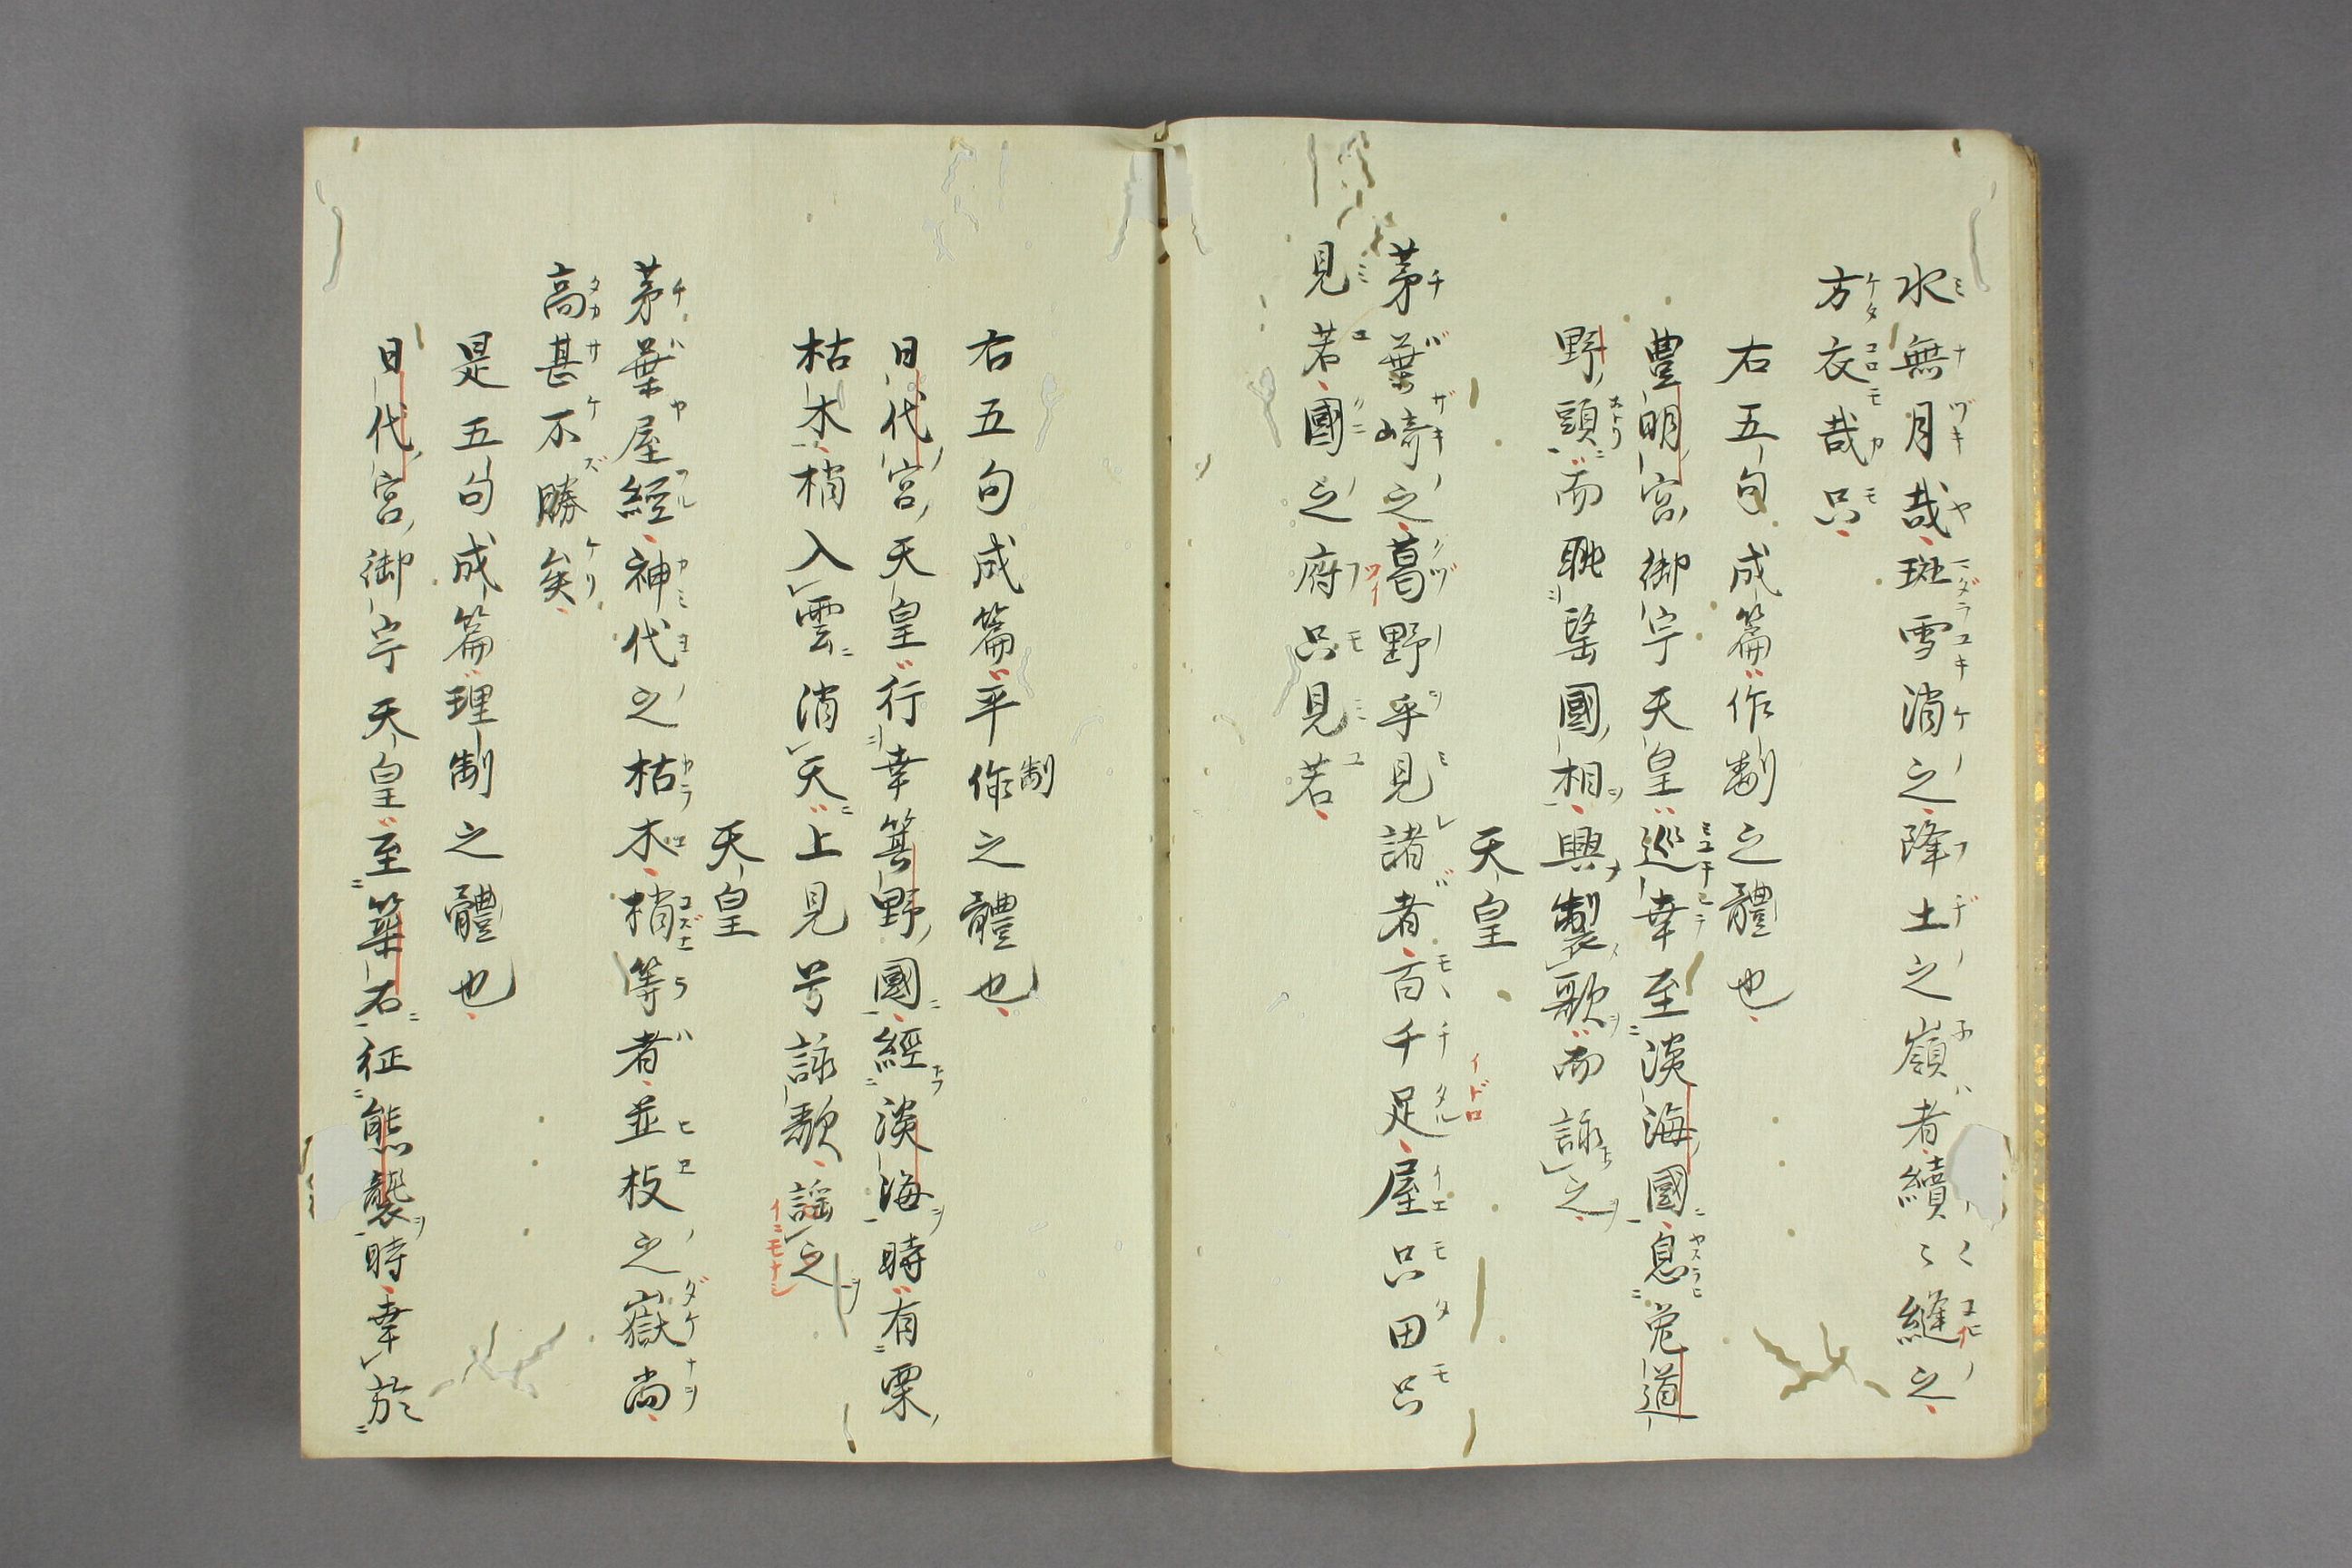 水無月哉斑雪消之降土之嶺者續〻縫之
方衣哉只
右五句成篇作制之體也
豊明宮御宇天皇巡幸至淡海國息菟道
野頭而眺望國相興製歌而詠之
天皇
茅葉崎之葛野乎見諸者百千足屋只田只
見若國之府只見若
右五句成篇平作之體也
制
日代宮天皇行幸箕野國經淡海時有栗
枯木梢入雲消天上見号詠歌謡之
天皇
茅葉屋經神代之枯木梢等者並枝之嶽尚
高甚不勝矣
是五句成篇理制之體也
日代宮御宇天皇至築石征熊襲時幸於